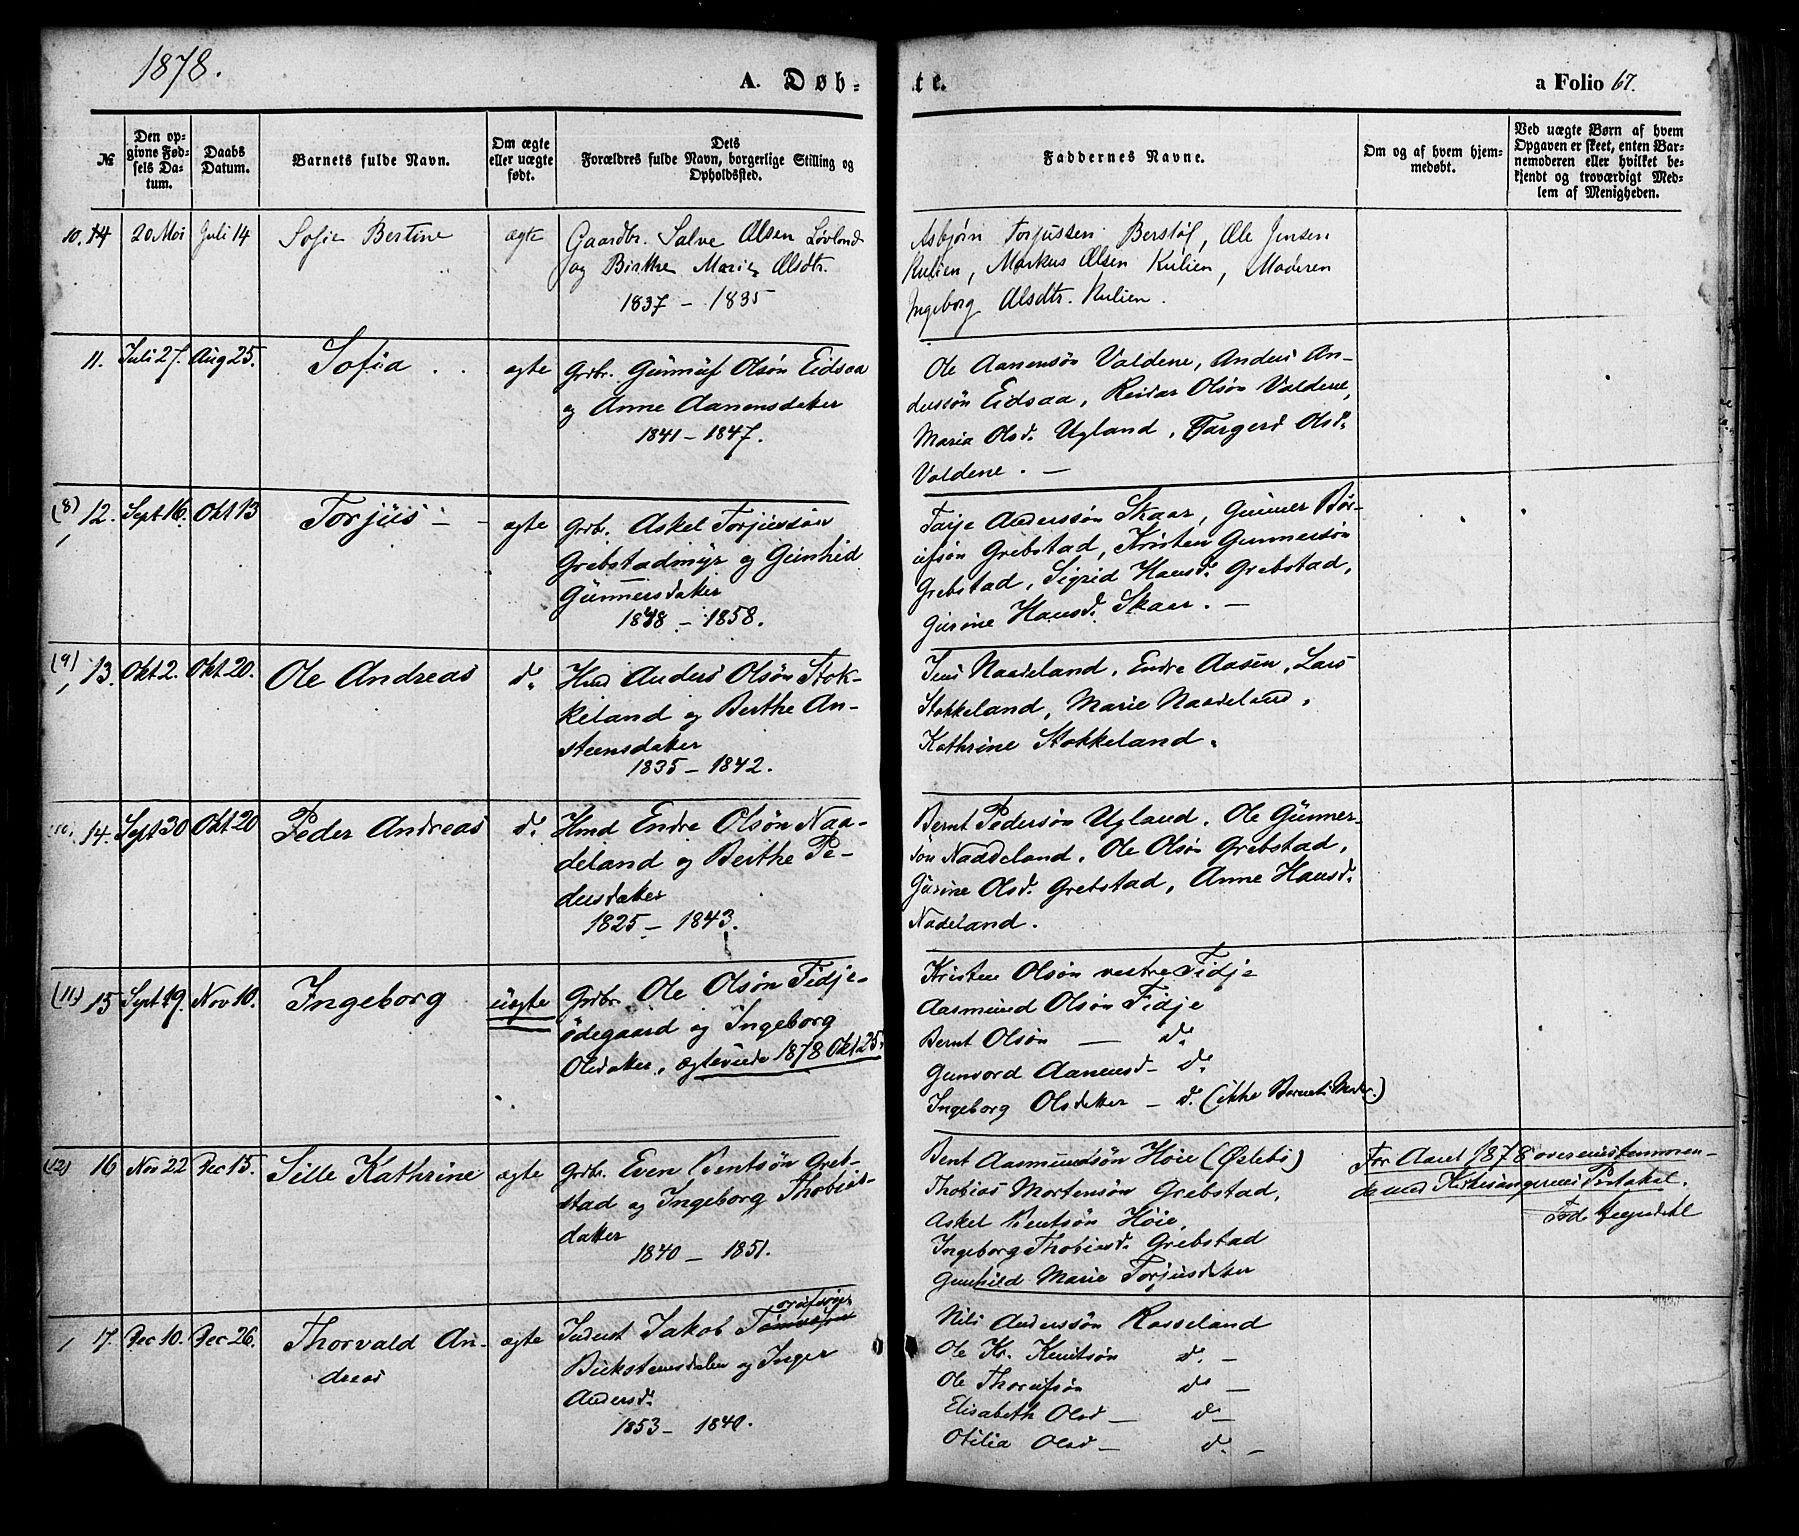 1878.
A. Døb-
te.
a Folio 67.
№
Den op-
givne Fød-
sels Da-
tum.
Daabs
Datum.
Barnets fulde Navn.
Om ægte
eller uægte
født.
Dets
Forældres fulde Navn, borgerlige Stilling og
Opholdssted.
Faddernes Navne.
Om og af hvem hjem-
medøbt.
Ved uægte Børn af hvem
Opgaven er skeet, enten Bar-
nemoderen eller hvilket be-
kjendt og troværdigt Med-
lem af Menigheden.
10. 14 20 Mai Juli 14 Sofie Bertine ægte
Gaardbr. Salve Olsen Løvland
og Birthe Marie Olsdtr.
1837 - 1835
Asbjørn Torjussen Berstøl, Ole Jensen
Kulien, Markus Olsen Kulien, Moderen
Ingeborg Olsdtr. Kulien.
11. Juli 27. Aug 25. Sofia ægte
Grdbr. Gunnuf Olsøn Eidsaa
og Anne Aanensdatter
1841 - 1847.
Ole Aanensøn Valdene, Anders An-
derssøn Eidsaa, Reidar Olsøn Valdene,
Maria Olsd. Ugland, Targerd Olsd.
Valdene. -
(8) 12. Sept 16. Okt 13 Torjus - - ægte
Grdbr. Askel Torjussøn
Grebstadmyr og Gunhid
Gunnersdatter
1848 - 1858.
Tarje Anderssøn Skaar, Gunner Bør-
ufsøn Grebstad, Kristen Gunnersøn
Grebstad, Sigrid Hansd. Grebstad,
Gurine Hansd. Skaar. -
(9) 13. Okt 2. Okt 20. Ole Andreas d.
Hmd Anders Olsøn Stok-
keland og Berthe An-
steensdatter
1835 - 1842.
Jens Naadeland, Endre Aasen, Lars
Stokkeland, Marie Naadeland,
Kathrine Stokkeland.
(10. 14. Sept 30 Okt 20 Peder Andreas d.
Hmd Endre Olsøn Naa-
deland og Berthe Pe-
dersdatter
1825 - 1843.
Bernt Pedersøn Ugland, Ole Gunner-
søn Naadeland, Ole Olsøn Grebstad,
Gurine Olsd. Grebstad, Anne Hansd.
Nadeland.
(11) 15 Sept 19. Nov 10. Ingeborg uægte
Grdbr. Ole Olsøn Fidje-
ødegaard og Ingeborg
Olsdatter, ægteviede 1878 Okt 25.
Kristen Olsøn vestre Fidje
Aasmund Olsøn Fidje
Bernt Olsøn - d.
Gunvord Aanensd - d.
Ingeborg Olsdatter - d. (ikke Barnets Moder.)
(12) 16 Nov 22 Dec 15. Sille Kathrine ægte
Grdbr. Even Bentsøn Greb-
stad og Ingeborg Thobias-
datter
1840 - 1851.
Bent Aasmundsøn Høie (Øslebø)
Thobias Mortensøn Grebstad,
Askel Bentsøn Høie,
Ingeborg Thobiasd. Grebstad
Gunhild Marie Torjusdatter
For Aaret 1878 overensstemmen-
de med Kirkesangerens Protokol.
17. Dec 10. Dec 26. Thorvald An-
dreas
ægte
Inderst Jakob
Birkstensdalen og Inger
Andersd.
1853 - 1840.
Nils Anderssøn Rosseland
Ole Kr. Knutsøn d. -
Ole Thorufsøn d. -
Elisabeth Olsd - d. -
Otilia Olsd - d. -